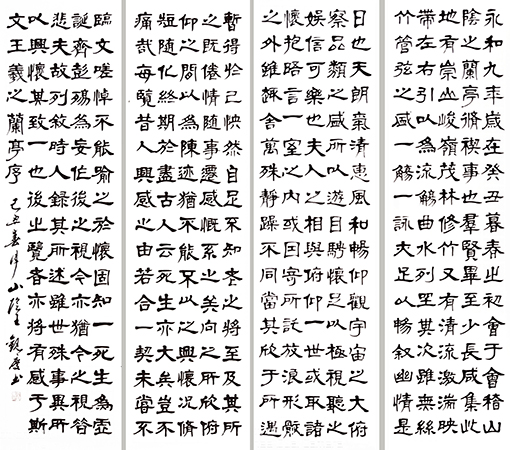 永和九年歲在癸丑暮春之初會于會稽山
陰之蘭亭脩禊事也群賢畢至少長咸集此
地有崇山峻嶺茂林脩竹又有清流激湍映
帶左右引以為流觴曲水列坐其次雖無絲
竹管弦之盛一觴一詠亦足以暢敘幽情是
日也天朗氣清惠風和暢仰觀宇宙之大俯
察品類之盛所以遊目騁懷足以極視聽之
娛信可樂也夫人之相與俯仰一世或取諸
懷抱晤言一室之內或因寄所託放浪形骸
之外雖趣舍萬殊靜躁不同當其欣於所遇
暫得於己怏然自足不知老之將至及其所
之既倦情隨事遷感慨係之矣向之所欣俯
仰之間以為陳迹猶不能不以之興懷況脩
短隨化終期於盡古人云死生亦大矣豈不
痛哉每覽昔人興感之由若合一契未嘗不
臨文嗟悼不能喻之於懷固知一死生為虛
誕齊彭殤為妄作後之視今亦猶今之視昔
悲夫故列敘時人錄其所述雖世殊事異所
以興懷其致一也後之覽者亦將有感于斯
文王羲之蘭亭序 己丑春